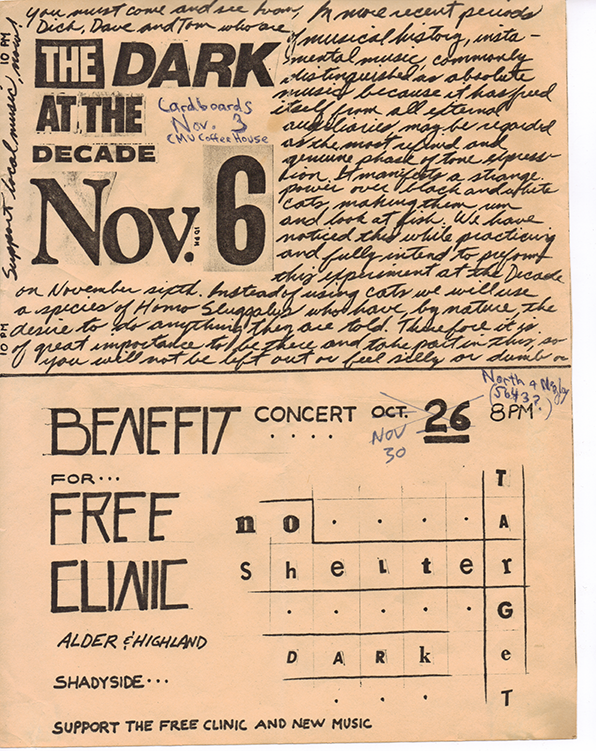 you must come and see
Dick, Dave and Tom who are
THE DARK
AT THE
DECADE
Nov. 6
Support local music, now!
10 PM
10 PM
Cardboards
Nov. 3
CMU Coffee House
In more recent periods
of musical history, insta-
mental music, commonly
distinguished as absolute
music because it has freed
itself from all external
auxiliaries, may be regarded
as the most refined and
genuine phase of tone express-
ion. It manifests a strange
power over black and white
cats, making them run
and look at fish. We have
noticed this while practicing
and fully intend to preform
this experiment at the Decade
on November sixth. Instead of using cats we will use
a species of Homo Sluggalus who have, by nature, the
desire to do anything they are told. Therefore it is
of great importance to be there and take part in this, so
you will not be left out or feel silly or dumb or
BENEFIT CONCERT OCT. 26 8PM
NOV
30
North &
(5643?)
FOR...
FREE
CLINIC
ALDER & HIGHLAND
SHADYSIDE...
no
Shelter
DARk
TArGeT
SUPPORT THE FREE CLINIC AND NEW MUSIC